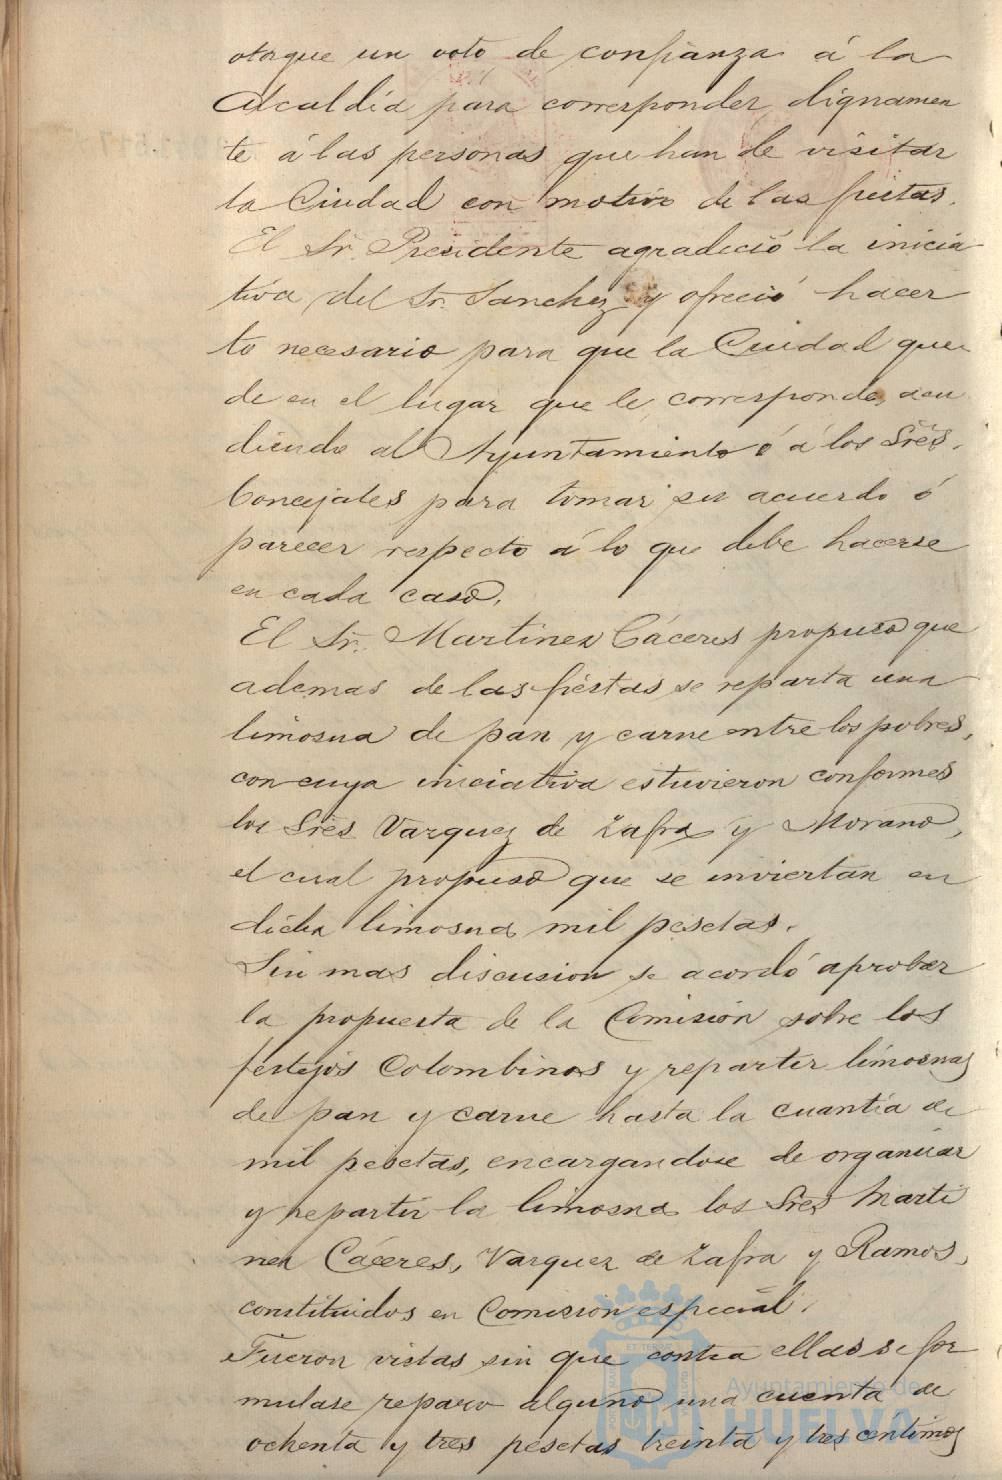 otorgue un voto de confianza á la
Alcaldía para corresponder dignamen
te á las personas que han de visitar
la Ciudad con motivo de las fiestas.
El Sr. Presidente agradeció la inicia
tiva del Sr. Sanchez y ofreció hacer
lo necesario para que la Ciudad que
de en el lugar que le corresponde, acu
diendo al Ayuntamiento ó á los Sres.
Concejales para tomar su acuerdo ó
parecer respecto á lo que debe hacerse
en cada caso.
El Sr. Martinez Cáceres propuso que
ademas de las fiestas se reparta una
limosna de pan y carne entre los pobres,
con cuya iniciativa estuvieron conformes
los Sres Vazquez de Zafra y Morano,
el cual propuso que se inviertan en
dicha limosna mil pesetas.
Sin mas discusion se acordó aprobar
la propuesta de la Comisión sobre los
festejos Colombinos y repartir limosnas
de pan y carne hasta la cuantía de
mil pesetas, encargandose de organizar
y repartir la limosna los Sres Marti
nez Cáceres, Vazquez de Zafra y Ramos,
constituidos en Comision especial.
Fueron vistas sin que contra ellas se for
mulase reparo alguno una cuenta de
ochenta y tres pesetas treinta y tres centimos
Ayuntamiento de
HUELVA